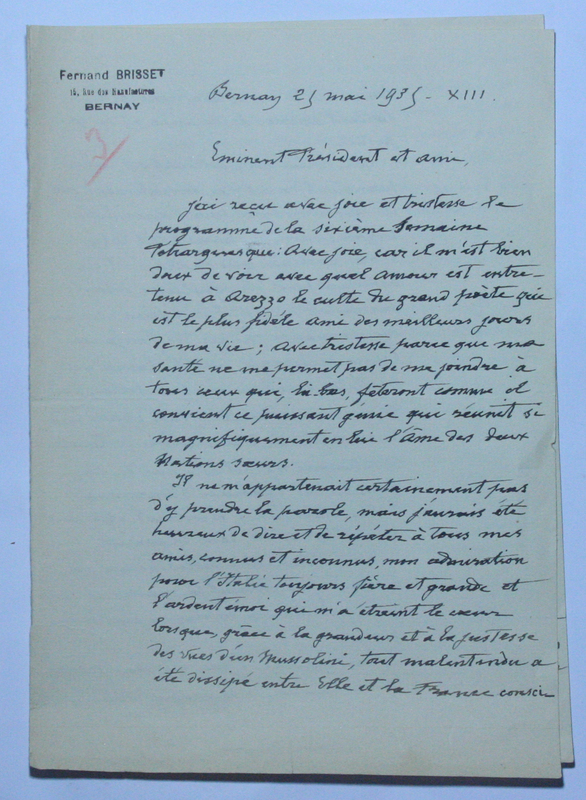 Fernand BRISSET
15, Rue des Manufactures
BERNAY
Bernay 25 mai 1935 - XIII.
Eminent Président et ami,
j'ai reçu avec joie et tristesse le
programme de la sixième Semaine
Pétrarquesque : Avec joie, car il m'est bien
doux de voir avec quel amour est entre-
tenu à Arezzo le culte du grand poète qui
est le plus fidèle ami des meilleurs jours
de ma vie ; avec tristesse parce que ma
santé ne me permet pas de me joindre à
tous ceux qui, là-bas, fêteront comme il
convient ce puissant génie qui réunit si
magnifiquement en lui l'âme des deux
Nations sœurs.
Il ne m'appartenait certainement pas
d'y prendre la parole, mais j'aurais été
heureux de dire et de répéter à tous mes
amis, connus et inconnus, mon admiration
pour l'Italie toujours fière et grande et
l'ardent émoi qui m'a étreint le cœur
lorsque, grâce à la grandeur et à la justesse
des vues d'un Mussolini, tout malentendu a
été dissipé entre Elle et la France conscie